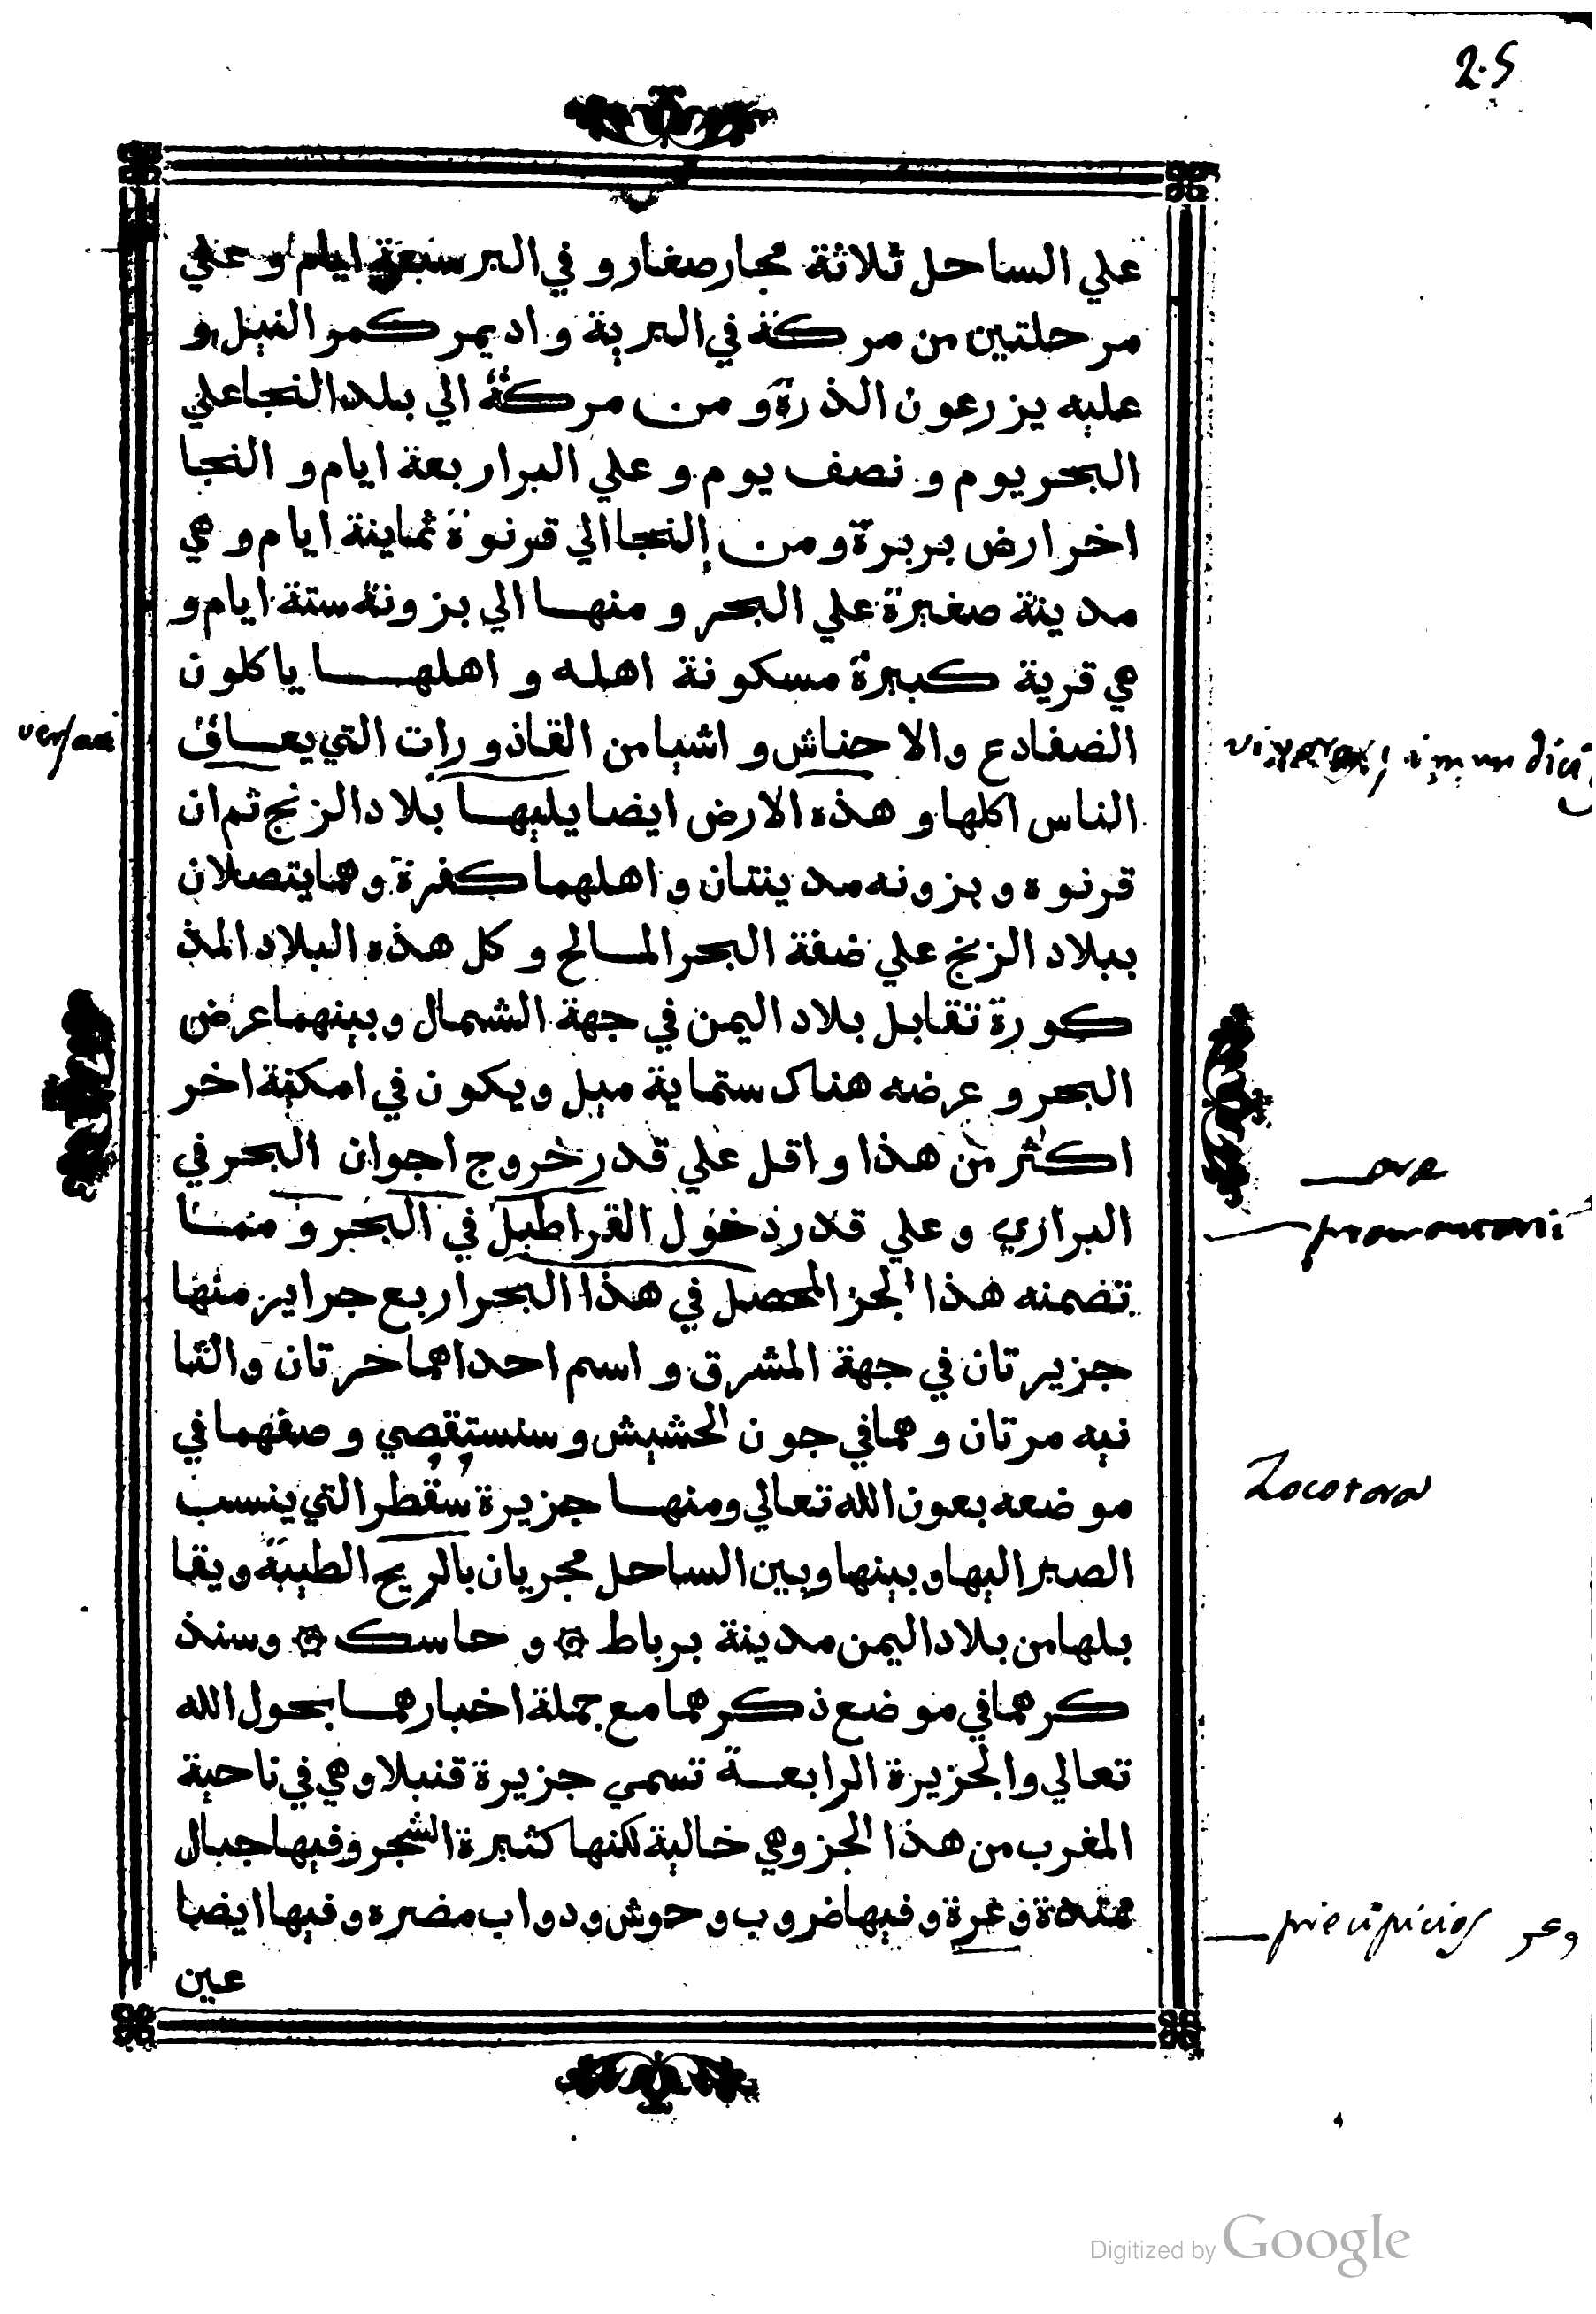 2.5
علي الساحل ثلاثة مجار صغار و في البر سبعة ايام و علي
مرحلتين من مركة في البرية واد يمر كمر النيل و
عليه يزرعون الذرة و من مركة الي بلد النجا علي
البحر يوم و نصف يوم و علي البر اربعة ايام و النجا
اخر ارض بربرة و من النجا الي قرنوة ثماينة ايام و هي
مدينة صغيرة علي البحر و منها الي بزونة ستة ايام و
هي قرية كبيرة مسكونة اهله و اهلها ياكلون
الضفادع والاحناش و اشيا من القاذورات التي يعاف
الناس اكلها و هذه الارض ايضا يليها بلاد الزنج ثم ان
قرنوه و بزونه مدينتان و اهلهما كفرة و هما يتصلان
ببلاد الزنج علي ضفة البحر المالح و كل هذه البلاد المذ
كورة تقابل بلاد اليمن في جهة الشمال و بينهما عرض
البحر و عرضه هناك ستماية ميل و يكون في امكنة اخر
اكثر من هذا و اقل علي قدر خروج اجوان البحر في
البراري و علي قدر دخول القراطيل في البحر و مما
تضمنه هذا الجز المحصل في هذا البحر اربع جراير منها
جزيرتان في جهة المشرق و اسم احداهما خرتان والثا
نيه مرتان و هما في جون الحشيش و سنستقصي و صفهما في
موضعه بعون الله تعالي ومنها جزيرة سُقُطر التي ينسب
الصبر اليها و بينها و بين الساحل مجريان بالريح الطيبة و يقا
بلها من بلاد اليمن مدينة برباط و حاسك و سنذ
كرهما في موضع ذكرهما مع جملة اخبارهما بحول الله
تعالي والجزيرة الرابعة تسمي جزيرة قنبلا و هي في ناحية
المغرب من هذا الجز و هي خالية لكنها كثيرة الشجر و فيها جبال
ممتدة وعرة و فيها ضروب و حوش و دواب مضره و فيها ايضا
عين
Zocotora
precipicios وعر
Digitized by Google